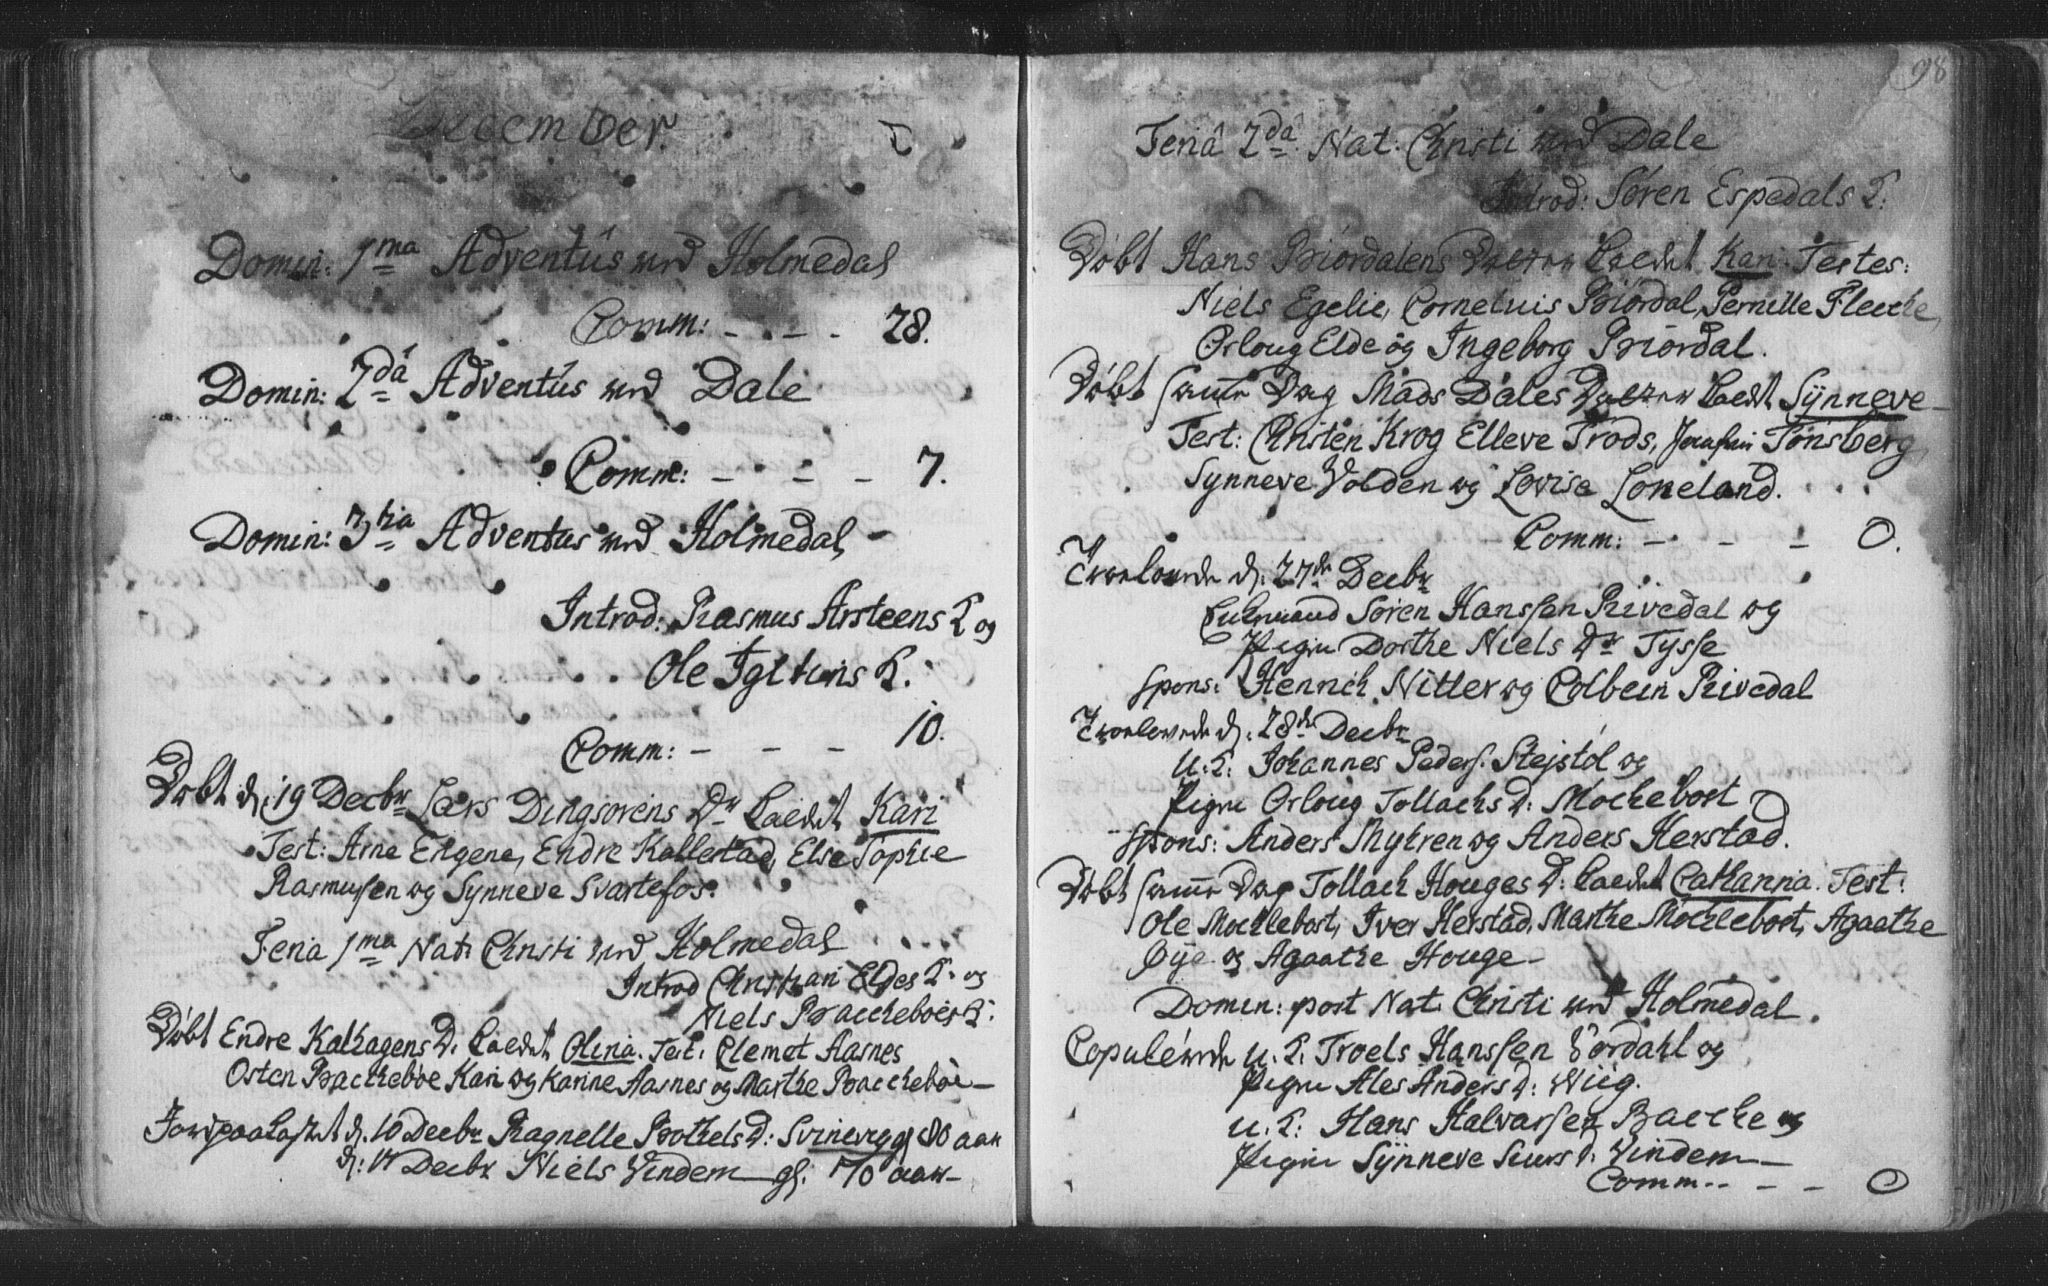 December.
Domin: 1ma Adventûs ved Holmedal
Comm: - - - 28.
Domin: 2dâ Adventûs ved Dale
Comm: - - - 7.
Domin: 3tia Adventus ved Holmedal
Introd: Rasmus Arsteens K og
Ole Igltuns K:
Comm: - - - 10.
Døbt d. 19 Decbr Lars Dingsørens Dr kaldet Kari
Test: Arne Engene, Endre Kallestad, Else Sophie
Rasmussen og Synneve Svartefos.
Feria 1ma Nat: Christi ved Holmedal
Introd Christian Eldes K: og
Niels Baccheböes K:
Døbt Endre Kalhagens D: kaldet Olina. Test: Clemet Aasnes
Osten Bacchebøe Kari og Karine Aasnes og Marthe Bacchebøe
Jordpaakastet d. 10 Decbr Ragnelle Bothels D: Svinevig gl 80 aar
d: 17 Decbr Niels Vindem gl: 70 aar
98
Feriâ 2dâ Nat: Christi ved Dale
Introd: Søren Espedals K:
Døbt Hans Biördalens Datter kaldet Kari. Testes:
Niels Egelie, Cornelius Biördal, Pernille Fleche,
Orloug Elde og Ingeborg Biördal.
Døbt samme Dag Mads Dales Datter kaldet Synneve
Test: Christen Krog Elleve Trods, Tønsberg,
Synneve Volden og Lovise Loneland.
Comm: - - - 0.
Trolovede d. 27de Decbr
Enkemand Søren Hanssen Rivedal og
Pigen Dorthe Niels Dr Tysse
Spons: Henrich Nitter og Colbein Rivedal
Trolovede d. 28de Decbr
U: K: Johannes Peders. Stejstøl og
Pigen Orloug Tollachs D: Mochebost
Spons: Anders Myhren og Anders Herstad.
Døbt samme Dag Tollach Houges D: kaldet Catharina. Test:
Ole Mochlebost, Iver Herstad, Marthe Mochlebost, Agaathe
Øÿe og Agaathe Houge
Domin: post Nat: Christi ved Holmedal.
Copulerede u. K: Troels Hanssen Vördahl og
Pigen Ales Anders D: Wiig.
u. K: Hans Halvorssen Bacche og
Pigen Synneve Siurs d. Vindem
Comm: - - - 0